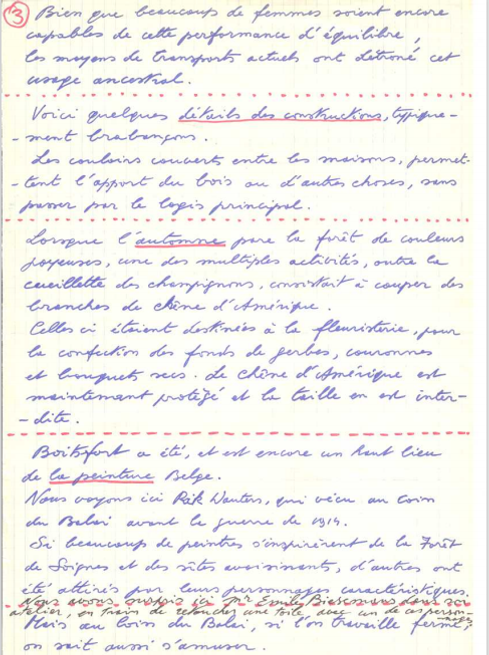 3
Bien que beaucoup de femmes soient encore
capables de cette performance d'équilibre,
les moyens de transports actuels ont détroné cet
usage ancestral.
Voici quelques détails des constructions, typique-
-ment brabançons.
Les couloirs couverts entre les maisons, permet-
-tent l'apport du bois ou d'autres choses, sans
passer par le logis principal.
Lorsque l'automne pare la forêt de couleurs
joyeuses, une des multiples activités, outre la
cueillette des champignons, consistait à couper des
branches de chêne d'Amérique.
Celles ci étaient destinées à la fleuristerie, pour
la confection des fonds de gerbes, couronnes
et bouquets secs. Le chêne d'Amérique est
maintenant protégé et la taille en est inter-
-dite.
Boitsfort a été, et est encore un haut lieu
de la peinture Belge.
Nous voyons ici Rik Wouters, qui vécu au Coin
du Balai avant la guerre de 1914.
Si beaucoup de peintres s'inspirèrent de la Forêt
de Soignes et des sites avoisinants, d'autres ont
été attirés par leurs personnages caractéristiques.
Nous avons surpris ici Mr Emile dans son
atelier, en train de retoucher une toile avec un de ces person-
-nages
Mais au Coin du Balai, si l'on travaille ferme,
on sait aussi s'amuser.